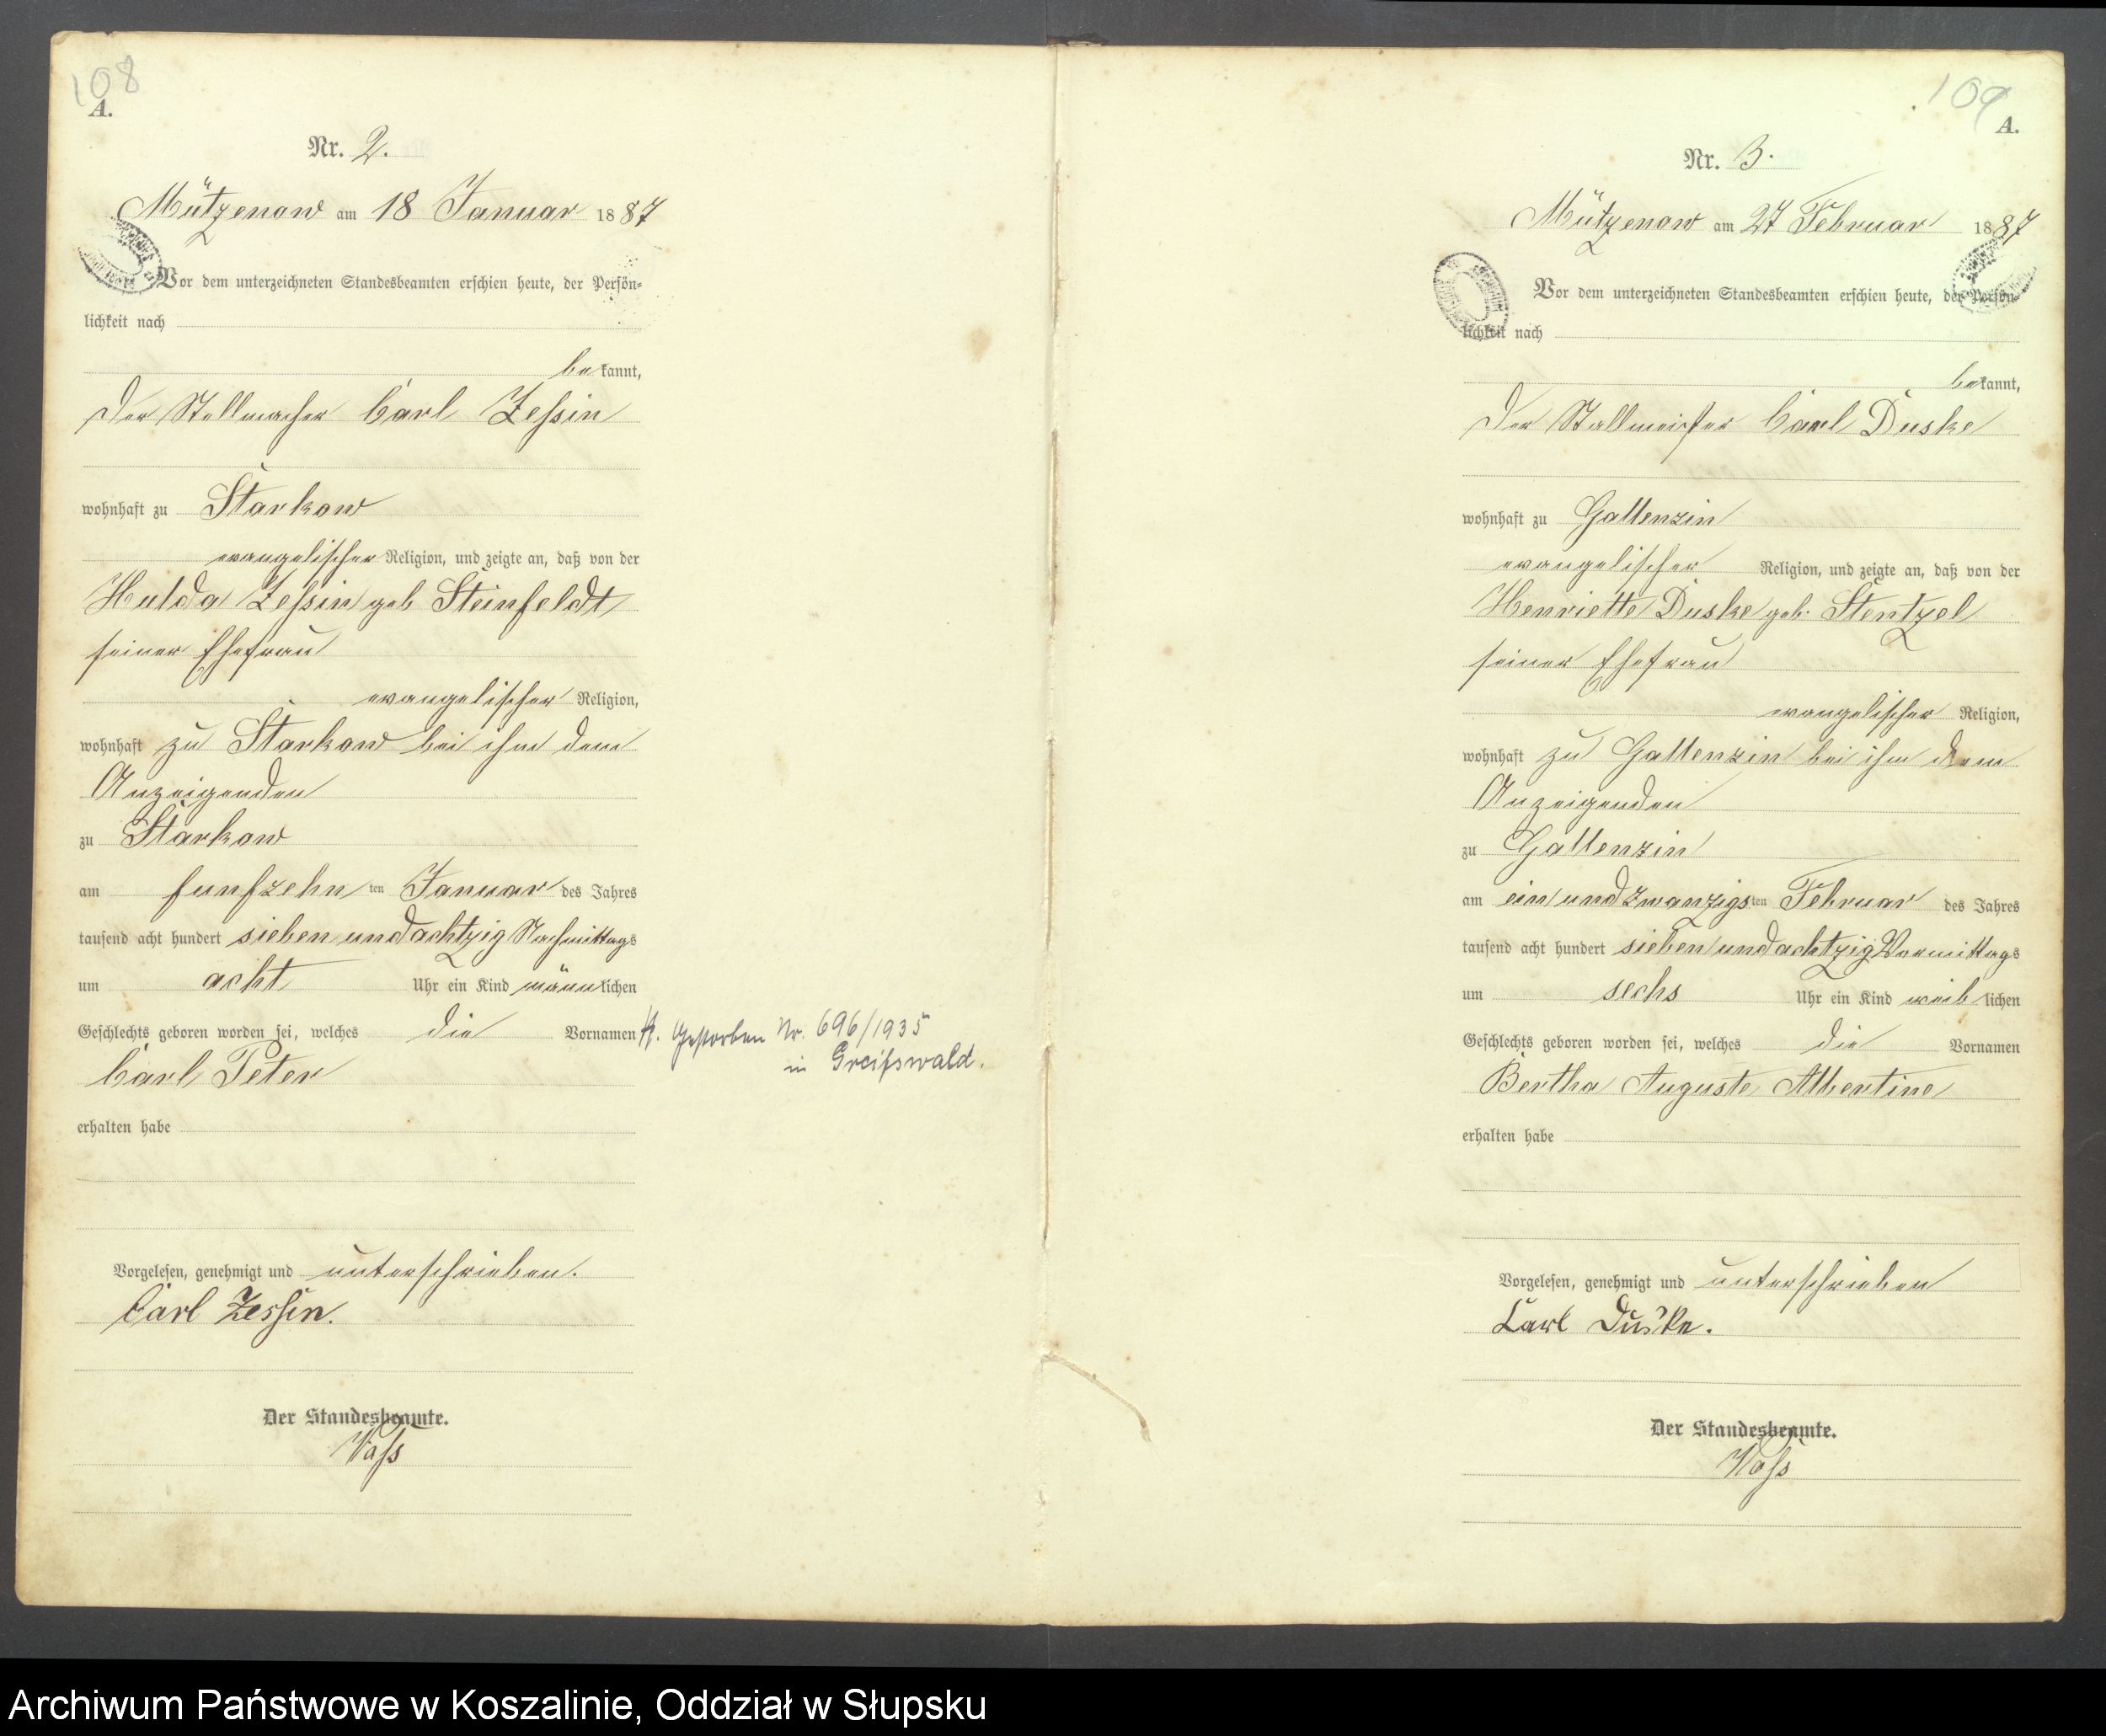 108
A.
Nr. 2.
Mützenow am 18 Januar 1887
Vor dem unterzeichneten Standesbeamten erschien heute, der Persön-
lichkeit nach
bekannt,
der Stellmacher Carl Zessin
wohnhaft zu Starkow
evangelischer Religion, und zeigte an, daß von der
Hulda Zessin geb Steinfeldt
seiner Ehefrau
evangelischer Religion,
wohnhaft zu Starkow bei ihm dem
Anzeigenden
zu Starkow
am funfzehn ten Januar des Jahres
tausend acht hundert sieben und achtzig Nachmittags
um acht Uhr ein Kind männlichen
Geschlechts geboren worden sei, welches die Vornamen
Carl Peter
erhalten habe
Vorgelesen, genehmigt und unterschrieben.
Carl Zessin.
Der Standesbeamte.
Voss
Gestorben Nr. 696/1935
in Greifswald.
109
A.
Nr. 3.
Mützenow am 27 Februar 1887
Vor dem unterzeichneten Standesbeamten erschien heute, der Persön-
lichkeit nach
bekannt,
der Stallmeister Carl Duske
wohnhaft zu Gallenzin
evangelischer Religion, und zeigte an, daß von der
Henriette Duske geb. Stentzel
seiner Ehefrau
evangelischer Religion,
wohnhaft zu Gallenzin bei ihm dem
Anzeigenden
zu Gallenzin
am ein und zwanzigsten Februar des Jahres
tausend acht hundert sieben und achtzig Vormittags
um sechs Uhr ein Kind weiblichen
Geschlechts geboren worden sei, welches die Vornamen
Bertha Auguste Albertine
erhalten habe
Vorgelesen, genehmigt und unterschrieben
Carl Duske.
Der Standesbeamte.
Voss
Archiwum Państwowe w Koszalinie, Oddział w Słupsku